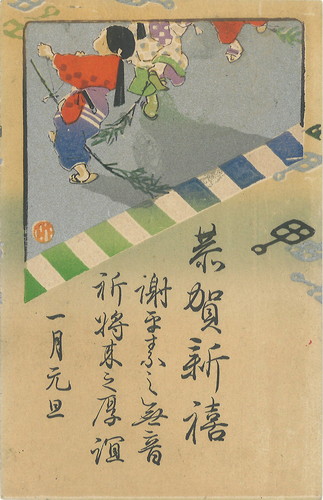 恭賀新禧
謝平素之無音
祈将来之厚誼
一月元旦